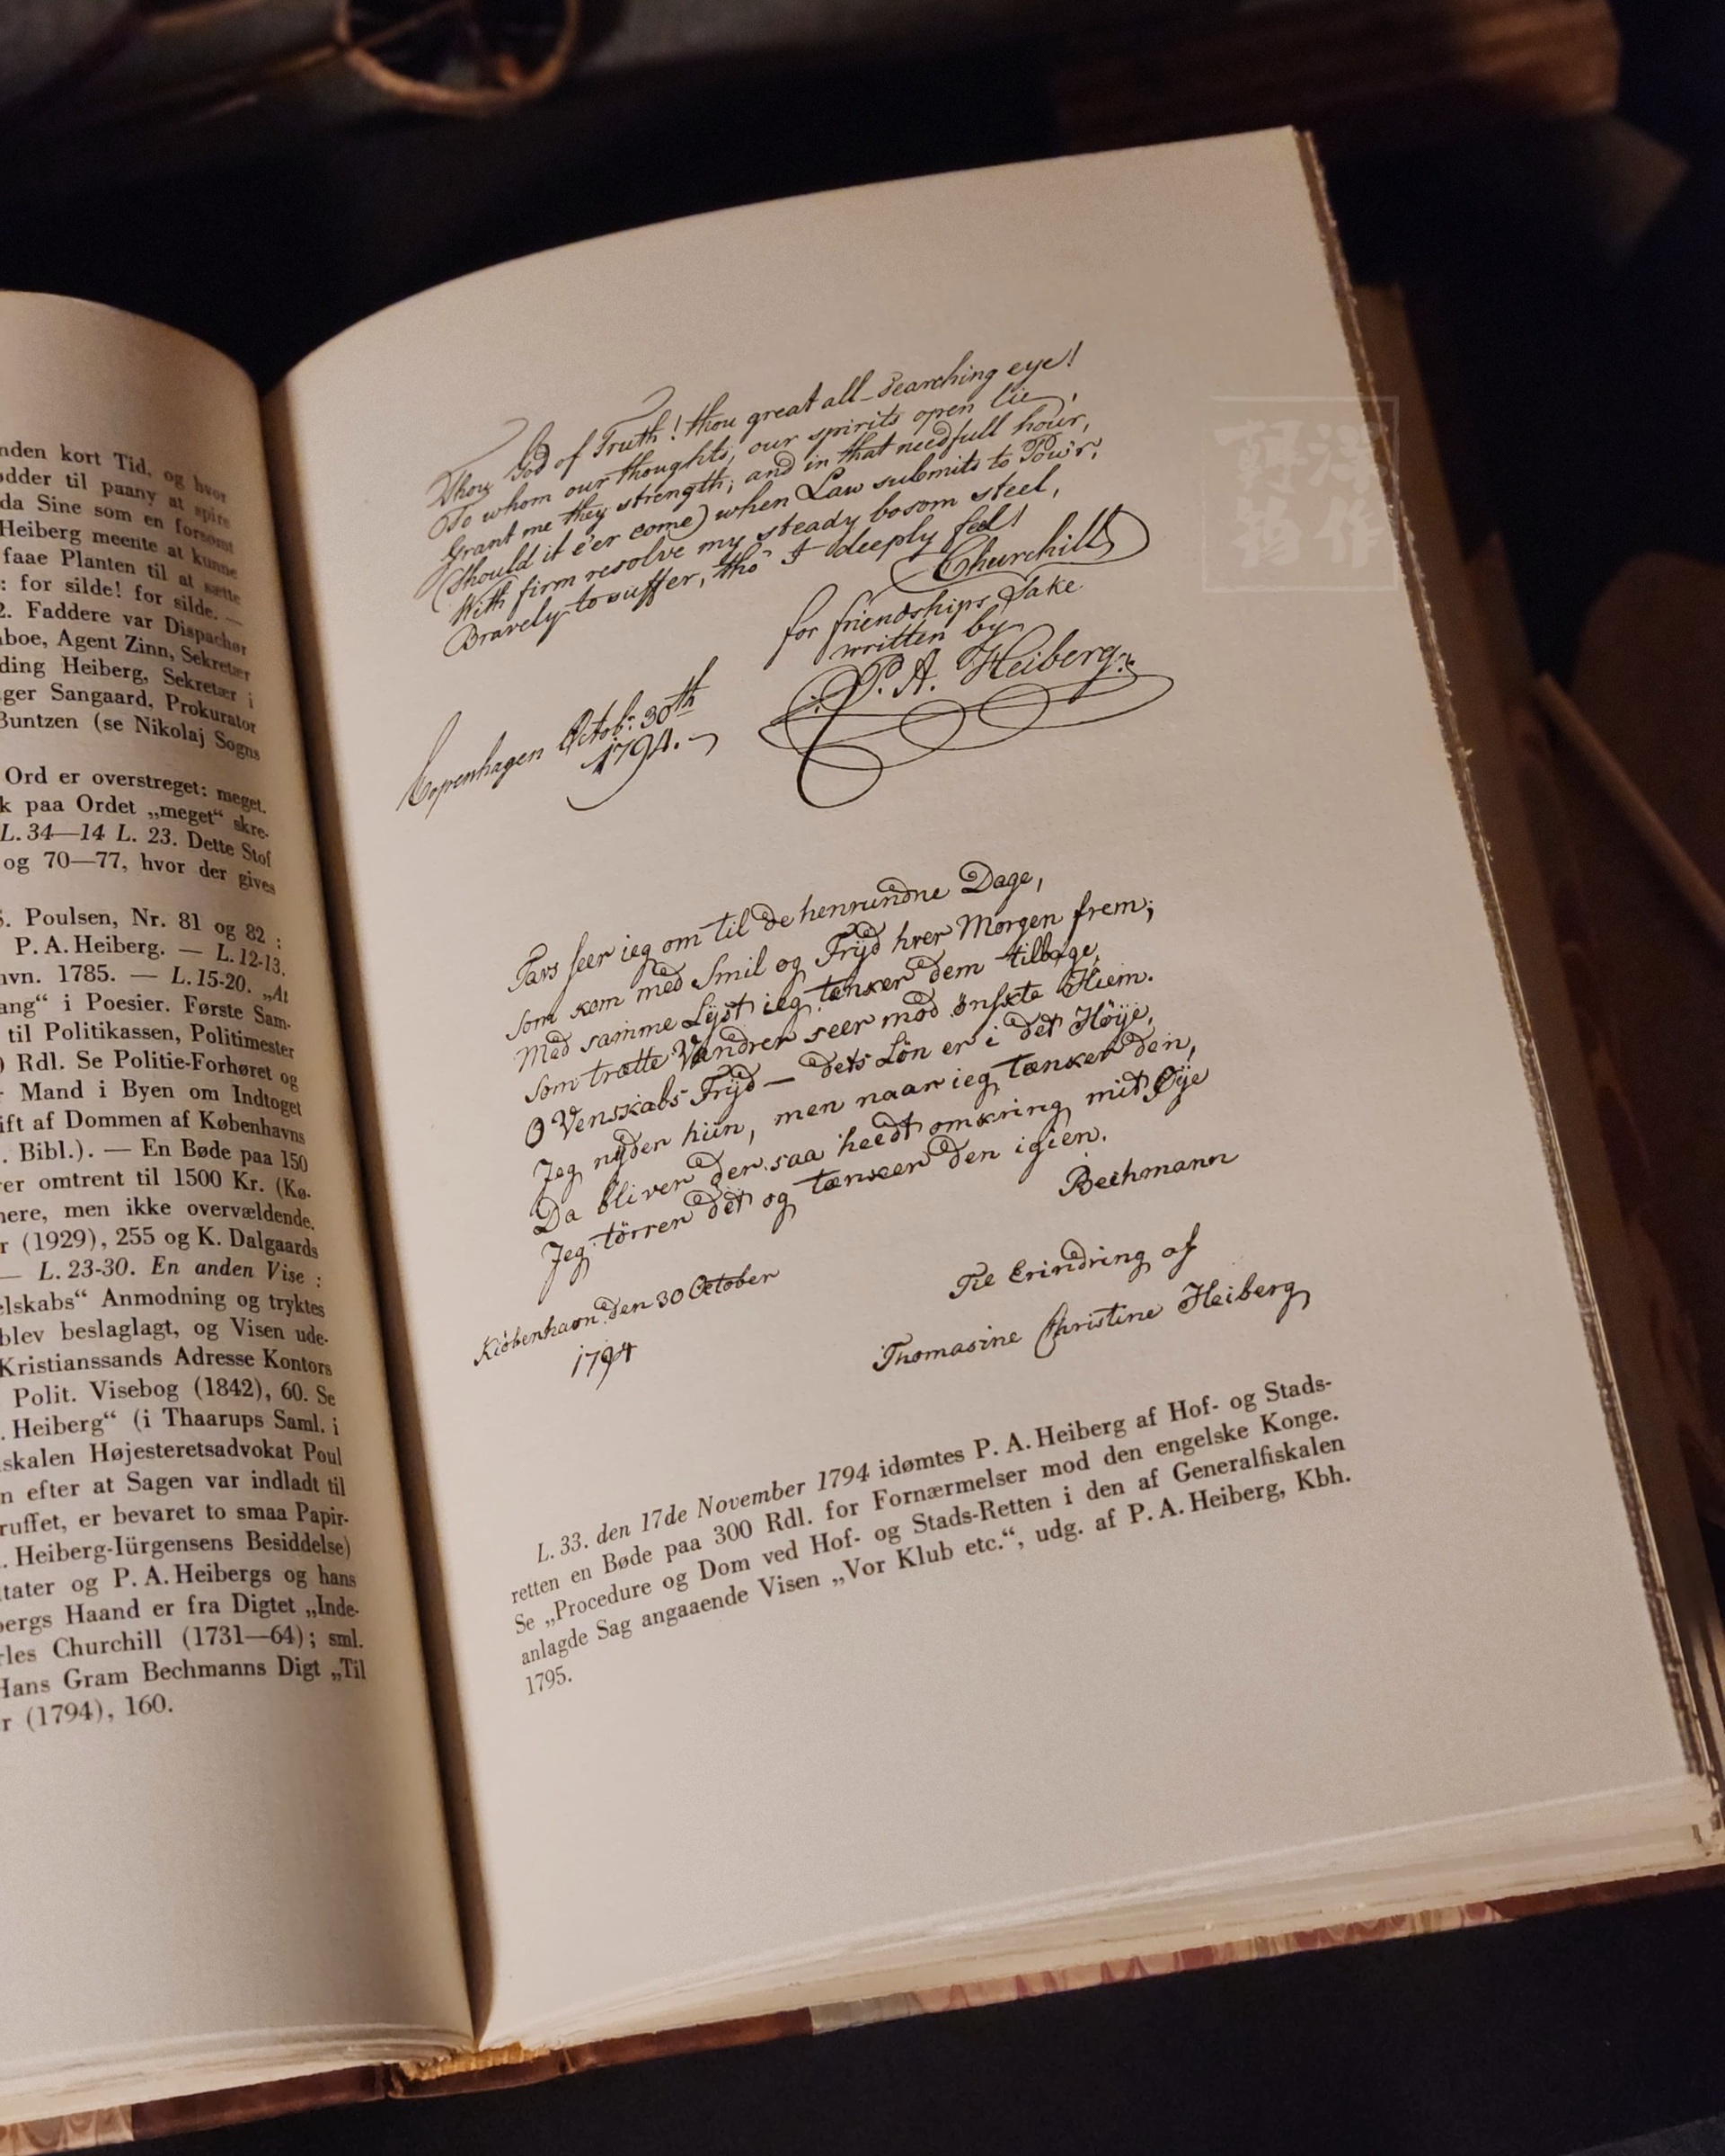 nden kort Tid, og hvor
odder til paany at spire
da Sine som en forsømt
Heiberg meente at kunne
faae Planten til at sætte
: for silde! for silde. —
2. Faddere var Dispachør
boe, Agent Zinn, Sekretær
ding Heiberg, Sekretær i
ger Sangaard, Prokurator
Buntzen (se Nikolaj Sogns
Ord er overstreget: meget.
k paa Ordet „meget“ skre-
L. 34—14 L. 23. Dette Stof
og 70—77, hvor der gives
S. Poulsen, Nr. 81 og 82 :
P. A. Heiberg. — L. 12-13.
vn. 1785. — L. 15-20. „At
ang“ i Poesier. Første Sam-
til Politikassen, Politimester
) Rdl. Se Politie-Forhøret og
r Mand i Byen om Indtoget
ift af Dommen af Københavns
. Bibl.). — En Bøde paa 150
er omtrent til 1500 Kr. (Kø-
nere, men ikke overvældende.
r (1929), 255 og K. Dalgaards
— L. 23-30. En anden Vise :
elskabs“ Anmodning og tryktes
blev beslaglagt, og Visen ude-
Kristianssands Adresse Kontors
Polit. Visebog (1842), 60. Se
. Heiberg“ (i Thaarups Saml. i
iskalen Højesteretsadvokat Poul
n efter at Sagen var indladt til
ruffet, er bevaret to smaa Papir-
. Heiberg-Iürgensens Besiddelse)
tater og P. A. Heibergs og hans
bergs Haand er fra Digtet „Inde-
rles Churchill (1731—64); sml.
Hans Gram Bechmanns Digt „Til
r (1794), 160.
Thou God of Truth! thou great all-searching eye!
To whom our thoughts, our spirits open lie,
Grant me they strength, and in that needfull hour,
(Should it e'er come) when Law submits to Pow'r,
With firm resolve my steady bosom steel,
Bravely to suffer, tho' I deeply feel!
Churchill
for friendships sake
written by
P. A. Heiberg
Copenhagen Octobr. 30th
1794.
Tavs seer ieg om til de henrundne Dage,
Som kom med Smil og Fryd hver Morgen frem;
Med samme Lyst ieg tænker dem tilbage,
Som trætte Vandrer seer mod ønskte Hiem.
O Venskabs Fryd — dets Løn er i det Høye,
Jeg nyder hiin, men naar ieg tænker den,
Da bliver der saa heedt omkring mit Øye
Jeg tørrer det og tænker den igien.
Bechmann
Kiøbenhavn den 30 October
1794
Til Erindring af
Thomasine Christine Heiberg
L. 33. den 17de November 1794 idømtes P. A. Heiberg af Hof- og Stads-
retten en Bøde paa 300 Rdl. for Fornærmelser mod den engelske Konge.
Se „Procedure og Dom ved Hof- og Stads-Retten i den af Generalfiskalen
anlagde Sag angaaende Visen „Vor Klub etc.“, udg. af P. A. Heiberg, Kbh.
1795.